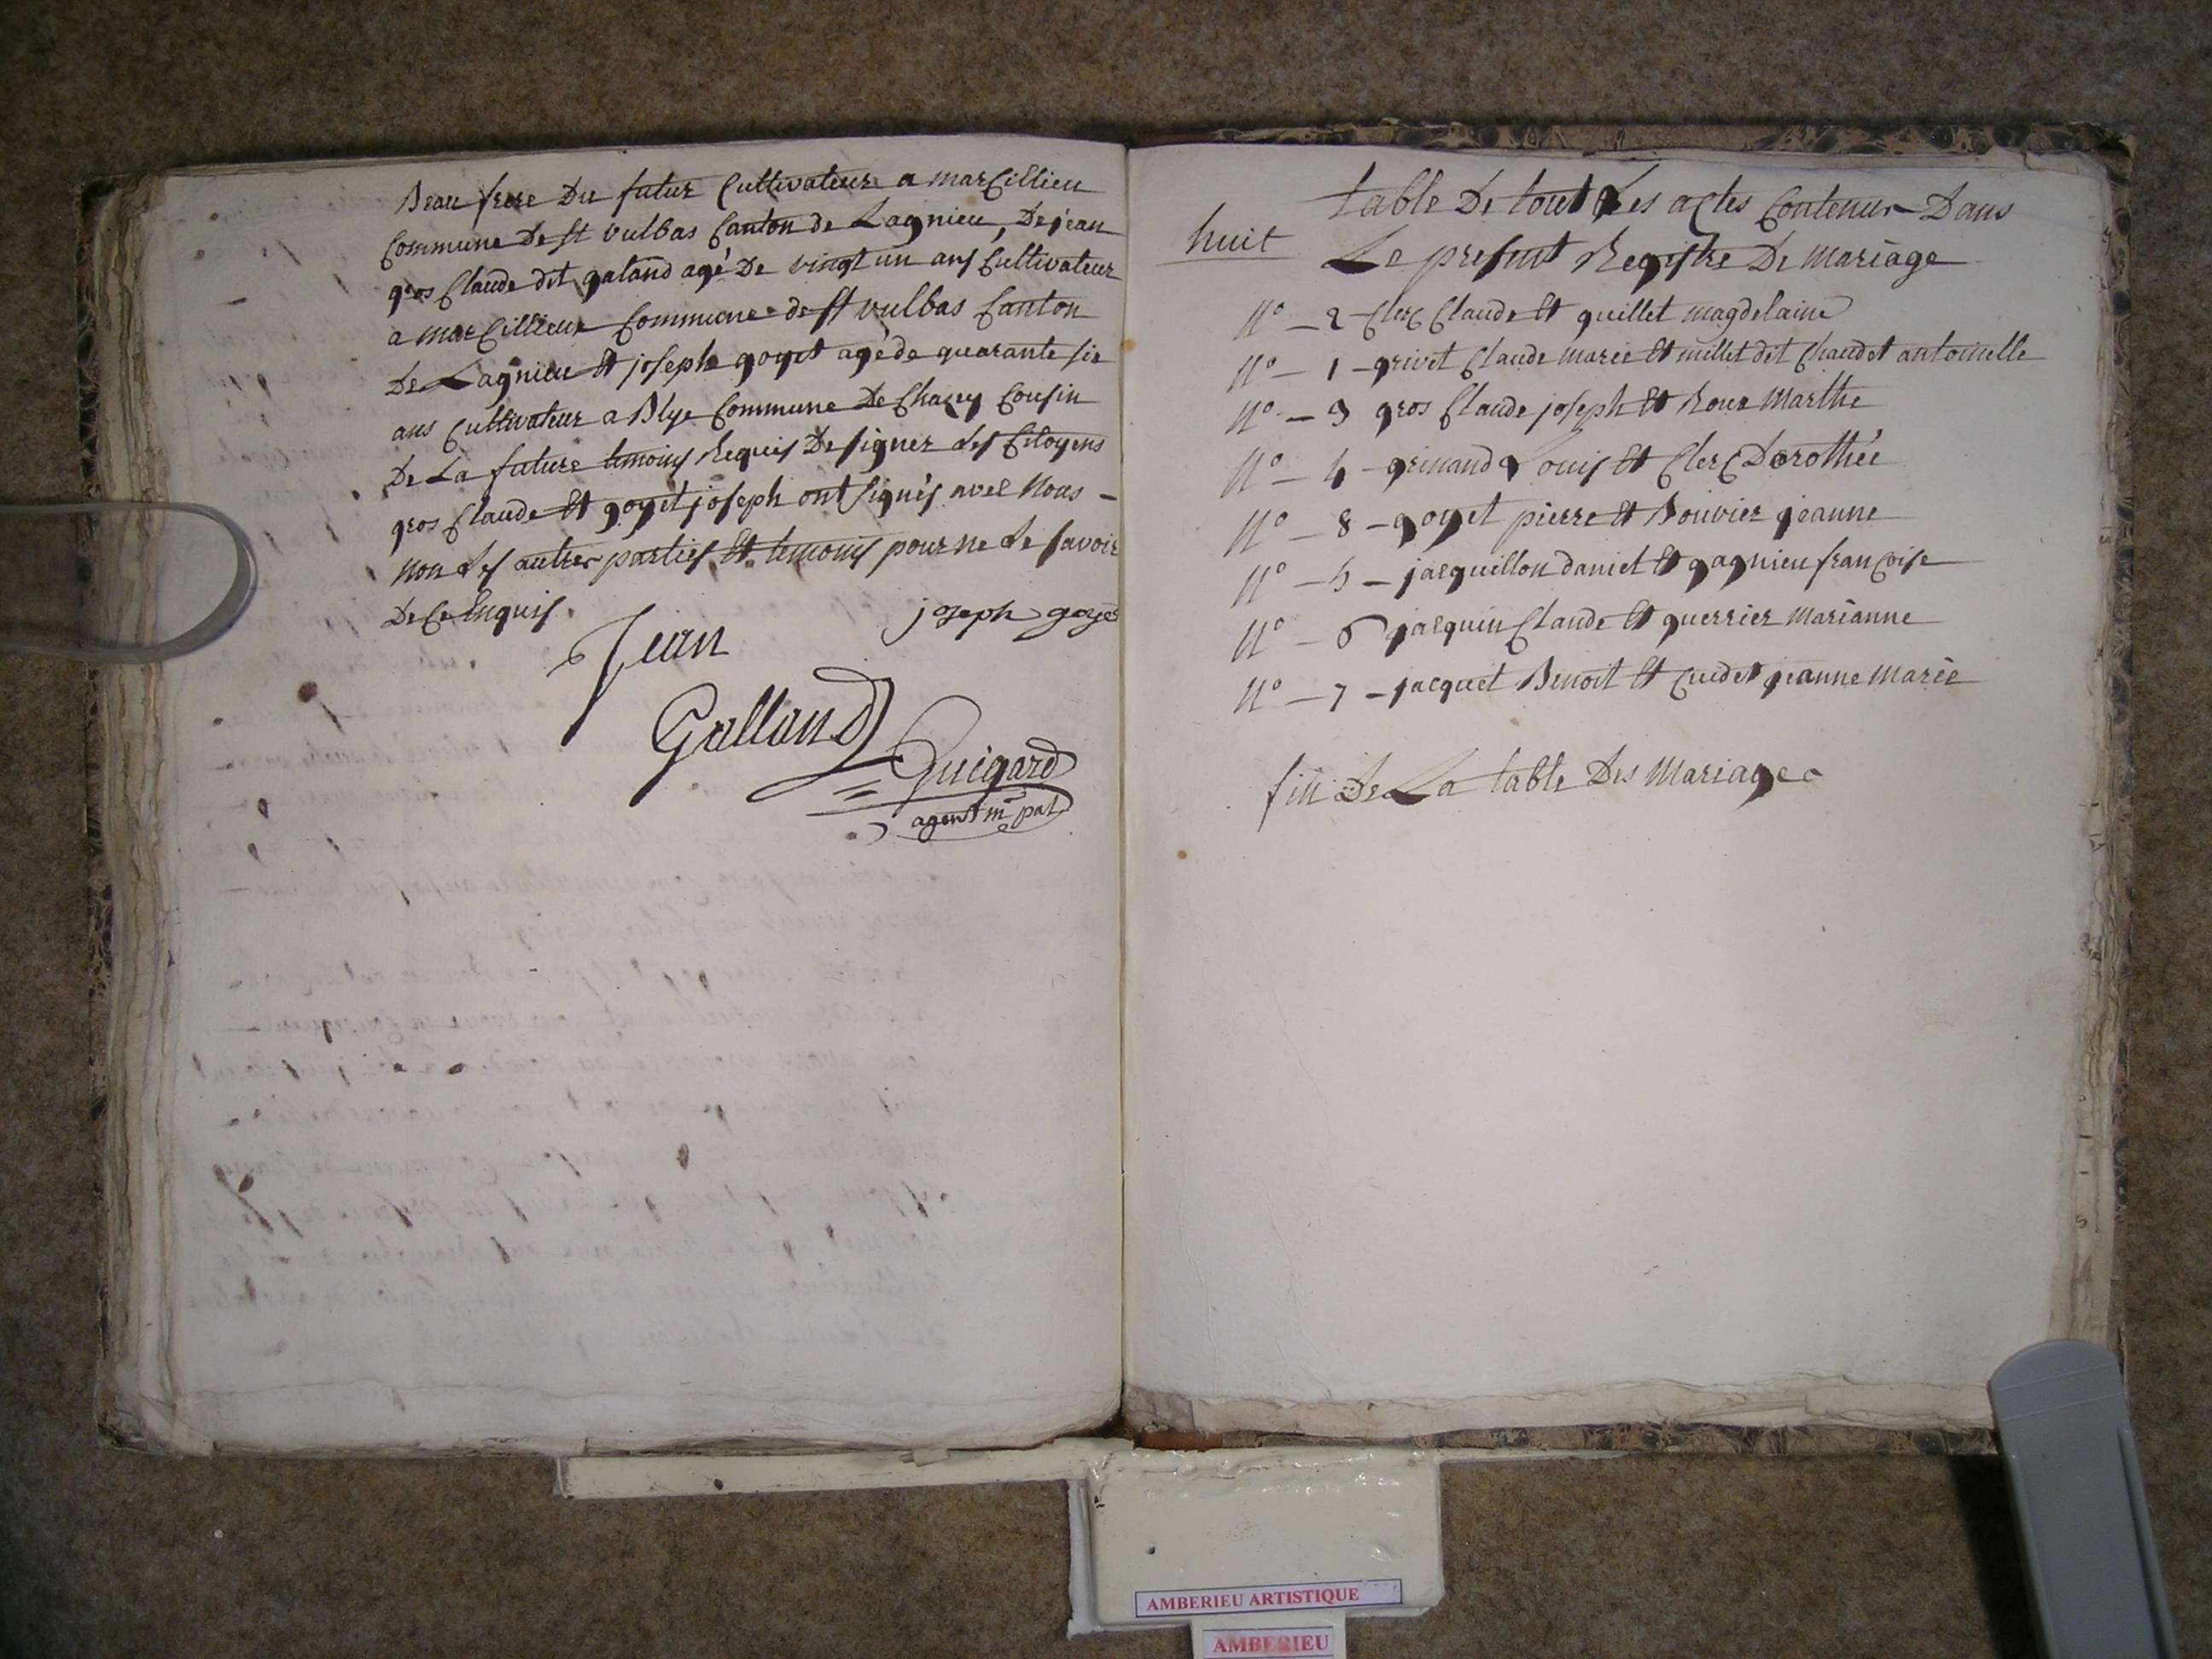 Beau frere Du futur Cultivateur a marCillieu
Commune De st vulbas Canton de Lagnieu, De jean
gros Claude dit galand agé De vingt un ans Cultivateur
a marCillieu Commune de st vulbas Canton
De Lagnieu Et joseph goyet agé de quarante six
ans Cultivateur a Blye Commune De Chazey Cousin
De La future temoins Requis De signer Les Citoyens
gros Claude Et goyet joseph ont signés avec Nous -
Non Les autres parties Et temoins pour ne Le savoir
De Ce Enquis.
joseph goyet
Jean
Galland
Guigard
agent m.pal
huit
table De tout Les actes Contenus Dans
Le present Registre De Mariage
N° - 2 - Clerc Claude Et guillet magdelaine
N° - 1 - grivet Claude marie Et millet dit Chaudet antoinette
N° - 3 gros Claude joseph Et Roux Marthe
N° - 4 - grinand Louis Et Clerc Dorothée
N° - 8 - goyet pierre Et Bouvier jeanne
N° - 5 - jacquillon daniel Et gagnieu franCoise
N° - 6 jacquin Claude Et guerrier Marianne
N° - 7 - jacquet Benoit Et Cudet jeanne Marie
fin De La table Des Mariages
AMBERIEU ARTISTIQUE
AMBERIEU